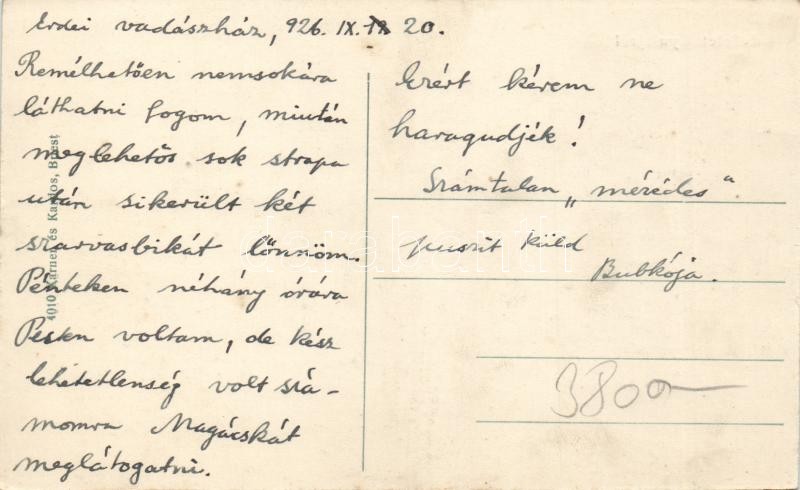 Erdei vadászház, 926. IX. 20.
Remélhetően nemsokára
láthatni fogom, miután
meglehetős sok strapa
után sikerült két
szarvasbikát lőnnöm.
Pénteken néhány órára
Pesten voltam, de kész
lehetetlenség volt szá-
momra Magácskát
meglátogatni.
Ezért kérem ne
haragudjék!
Számtalan „mézédes"
puszit küld
Bubkója.
3800
és Karlos, Bpest